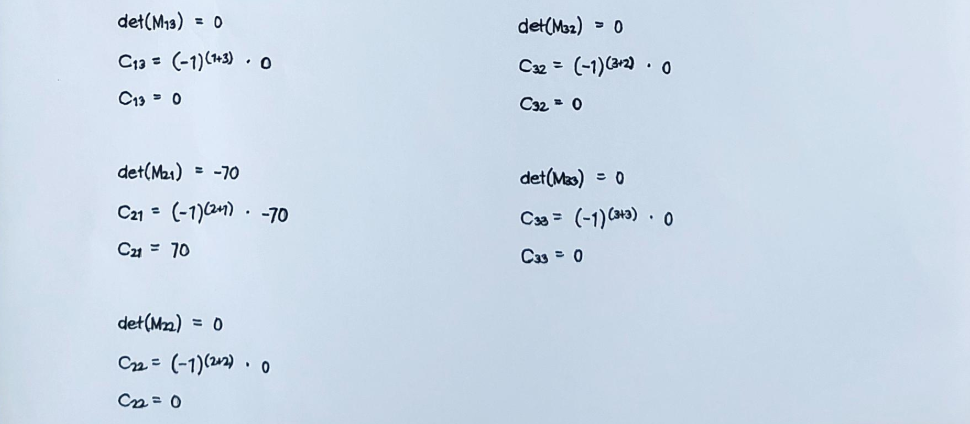 det(M₁₃) = 0
C₁₃ = (-1)⁽¹⁺³⁾ · 0
C₁₃ = 0
det(M₂₁) = -70
C₂₁ = (-1)⁽²⁺¹⁾ · -70
C₂₁ = 70
det(M₂₂) = 0
C₂₂ = (-1)⁽²⁺²⁾ · 0
C₂₂ = 0
det(M₃₂) = 0
C₃₂ = (-1)⁽³⁺²⁾ · 0
C₃₂ = 0
det(M₃₃) = 0
C₃₃ = (-1)⁽³⁺³⁾ · 0
C₃₃ = 0